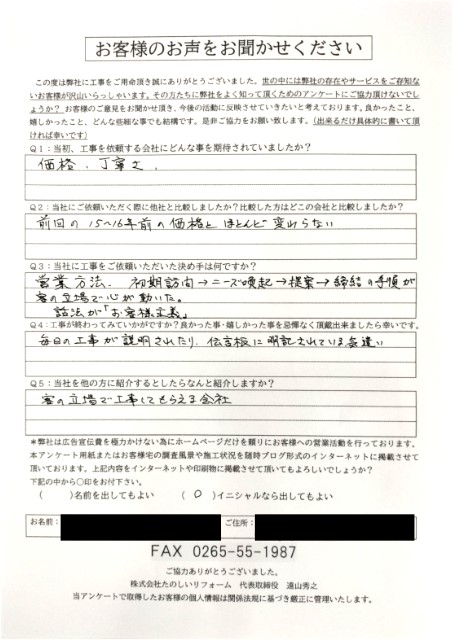 お客様のお声をお聞かせください
この度は弊社に工事をご用命頂き誠にありがとうございました。世の中には弊社の存在やサービスをご存知ない
お客様が沢山いらっしゃいます。その方たちに弊社をよく知って頂くためのアンケートにご協力頂けないで
しょうか？お客様のご意見をお聞かせ頂き、今後の活動に反映させていきたいと考えております。良かったこと、
嬉しかったこと、どんな些細な事でも結構です。是非ご協力をお願い致します。（出来るだけ具体的に書いて頂
ければ幸いです）
Q1：当初、工事を依頼する会社にどんな事を期待されていましたか？
価格、丁寧さ、
Q2：当社にご依頼いただく際に他社と比較しましたか？比較した方はどこの会社と比較しましたか？
前回の15～16年前の価格とほとんど変わらない
Q3：当社に工事をご依頼いただいた決め手は何ですか？
営業方法、初期訪問→ニーズ喚起→提案→締結の手順が
客の立場で心が動いた。
話法が「お客様主義」
Q4：工事が終わってみていかがですか？良かった事・嬉しかった事を忌憚なく頂戴出来ましたら幸いです。
毎日の工事が説明されたり、伝言板に明記されている気遣い
Q5：当社を他の方に紹介するとしたらなんと紹介しますか？
客の立場で工事してもらえる会社
＊弊社は広告宣伝費を極力かけない為にホームページだけを頼りにお客様への営業活動を行っております。
本アンケート用紙またはお客様宅の調査風景や施工状況を随時ブログ形式のインターネットに掲載させて
頂いております。上記内容をインターネットや印刷物に掲載させて頂いてもよろしいでしょうか？
下記の中から○印をお付け下さい。
（　　）名前を出してもよい　（ ○ ）イニシャルなら出してもよい
お名前：　ご住所：
FAX 0265-55-1987
ご協力ありがとうございました。
株式会社たのしいリフォーム　代表取締役　遠山秀之
当アンケートで取得したお客様の個人情報は関係法規に基づき厳正に管理いたします。